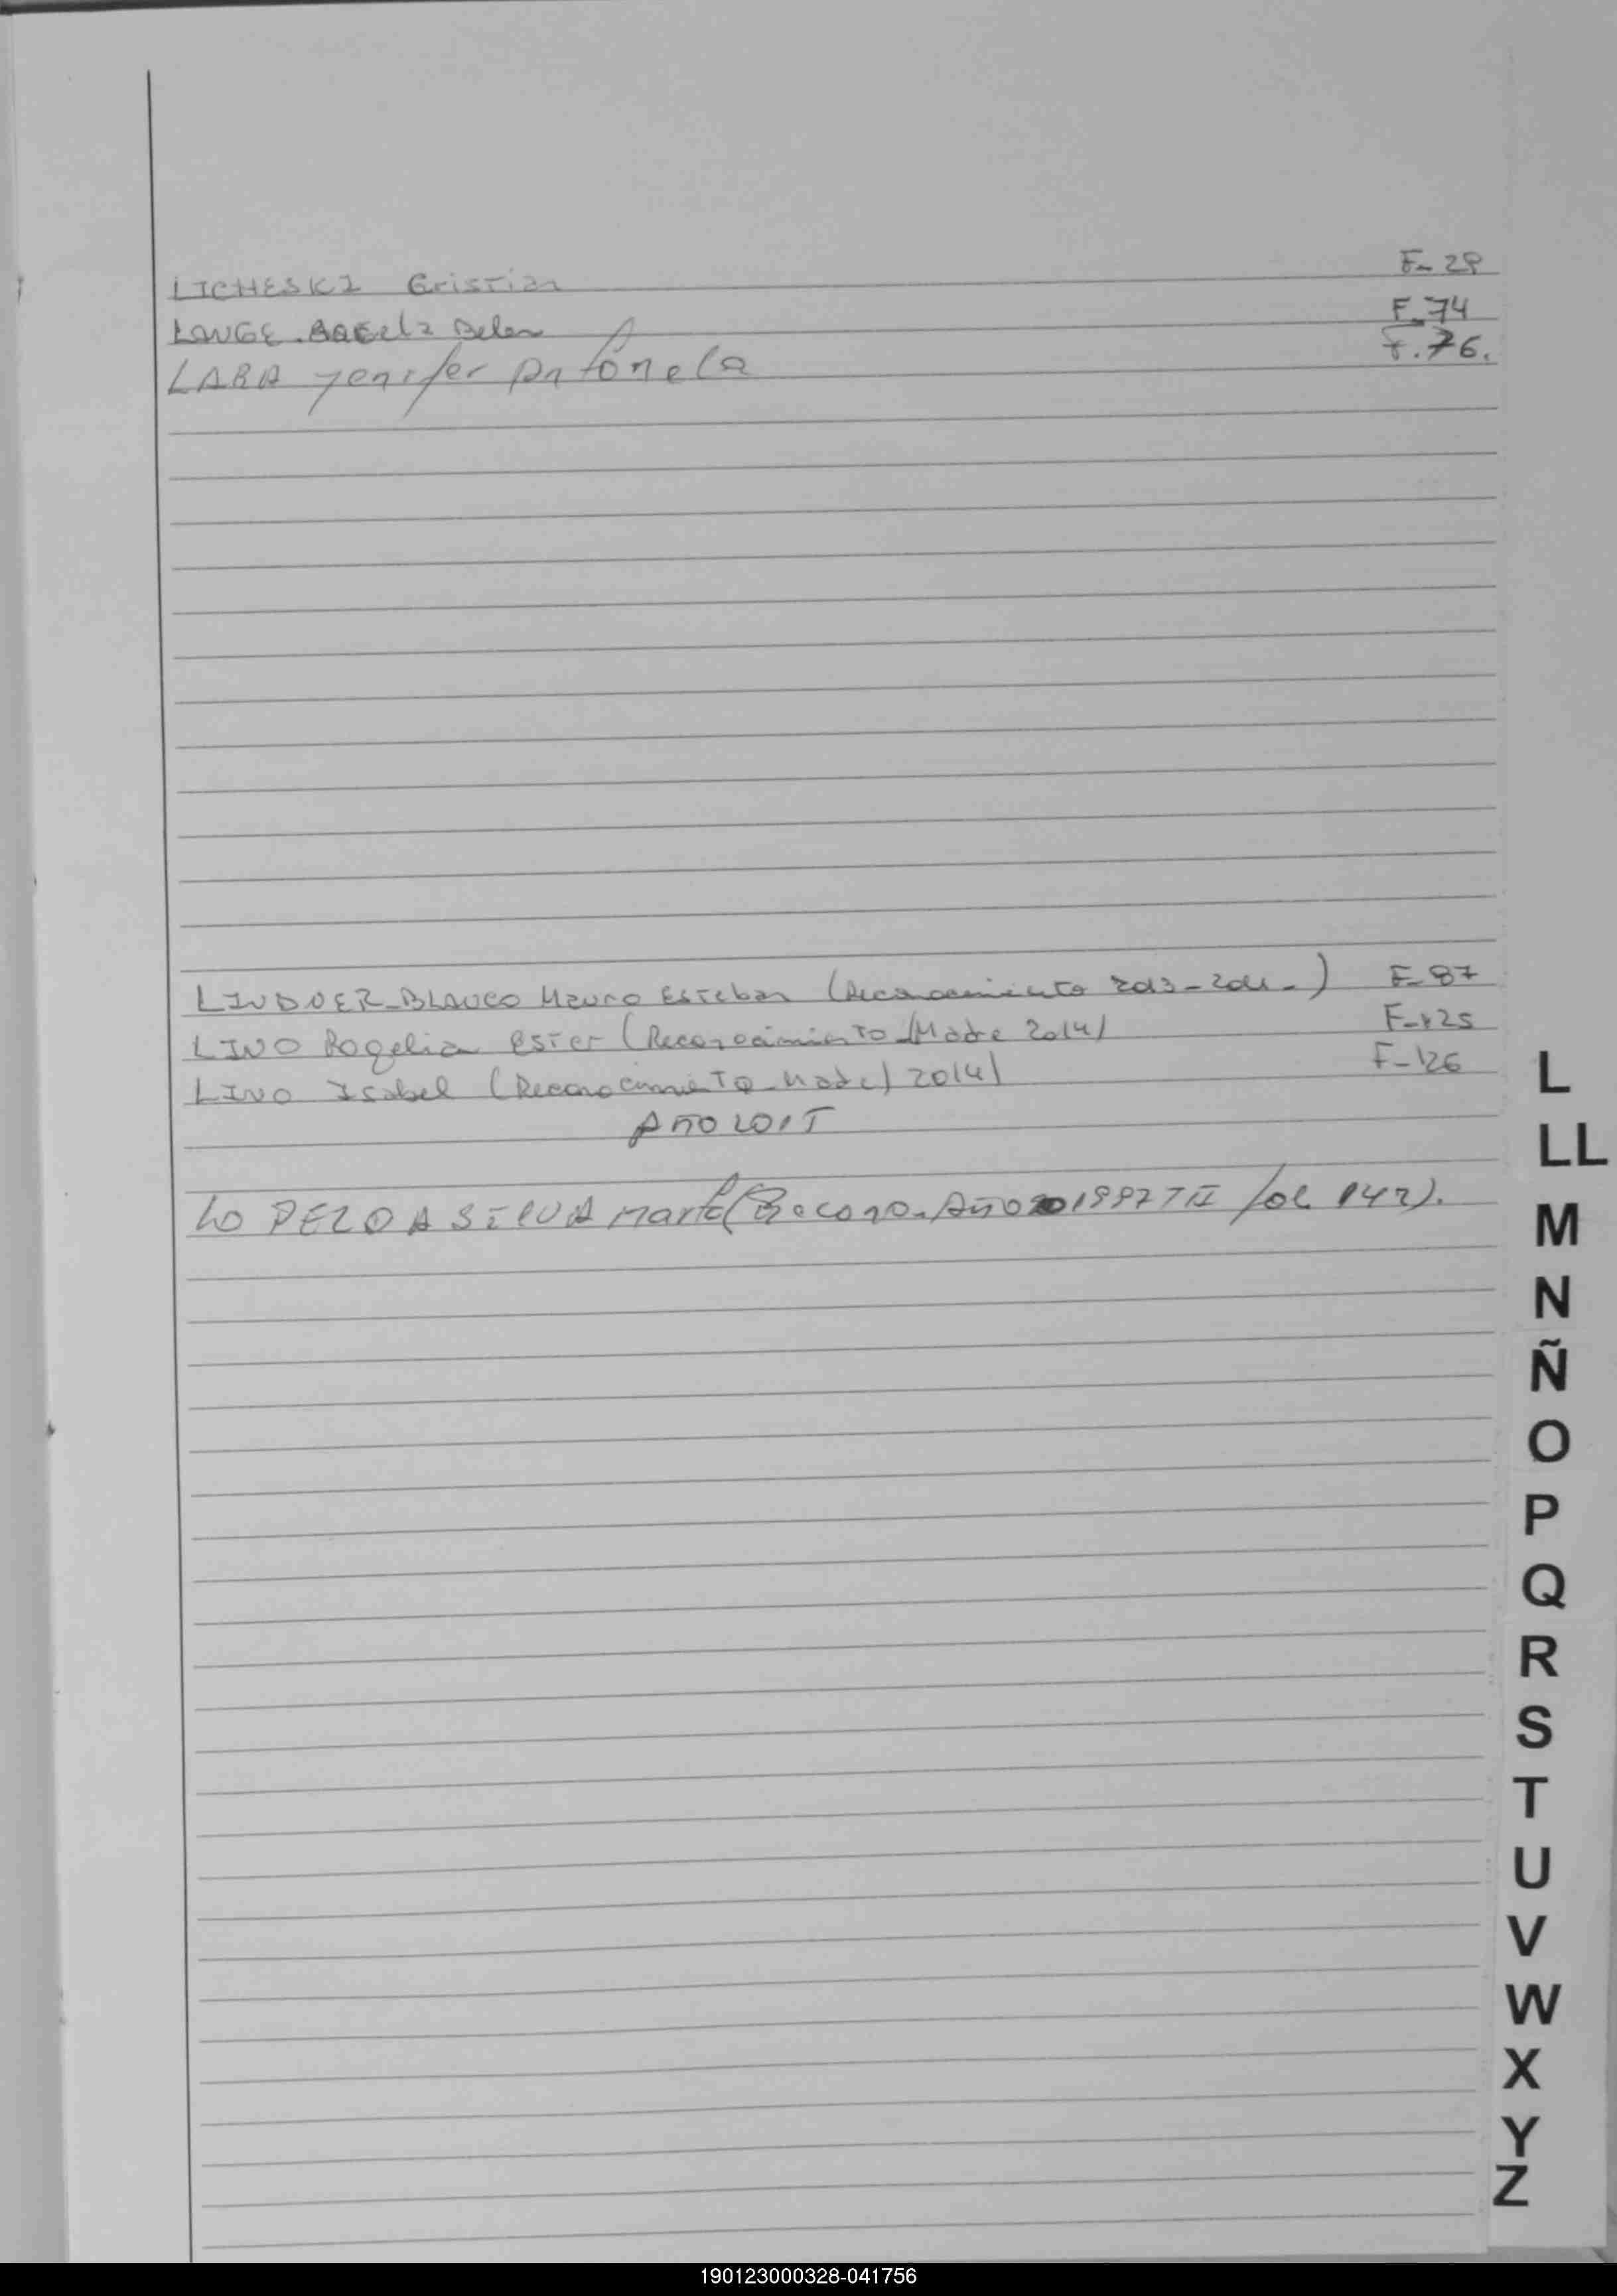 LICHESKI Cristian F-28
LANGE. Belen F-74
LARA yenifer Antonela F.76.
LINDNER-BLANCO Mauro Esteban (Reconocimiento 2013- F-87
LINO Rogelia Ester (Reconocimiento-Madre 2014) F-125
LINO Isabel (Reconocimiento-Madre) 2014) F-126
AÑO
LOPEZ DA SILVA Marta (Recono. Año 1997 T II fol 142).
L
LL
M
N
Ñ
O
P
Q
R
S
T
U
V
W
X
Y
Z
190123000328-041756